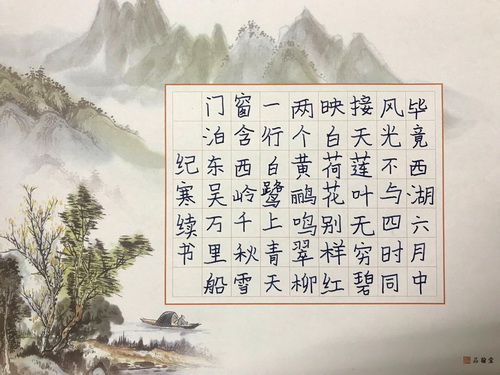 毕竟西湖六月中
风光不与四时同
接天莲叶无穷碧
映白荷花别样红
两个黄鹂鸣翠柳
一行白鹭上青天
窗含西岭千秋雪
门泊东吴万里船
纪寒续书
品翰堂